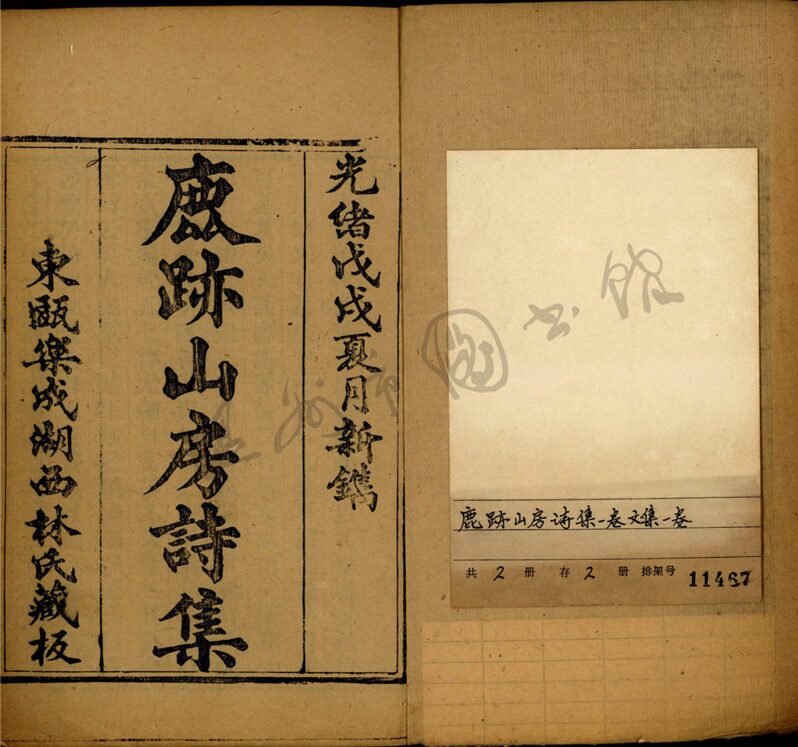 光緒戊戌夏月新鐫
鹿跡山房詩集
東甌樂成湖西林氏藏板
鹿跡山房诗集一卷文集一卷
共 2 册 存 2 册 排架号 11467
溫州市圖書館